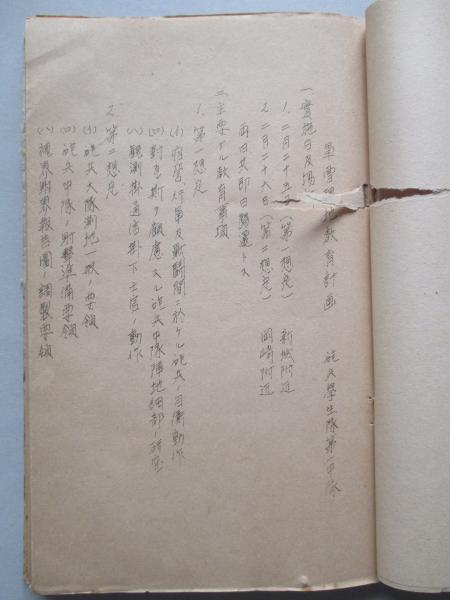 軍曹現地教育計画
砲兵學生隊第一中隊
一、實施日及場所
1. 二月二十五日(第一想定) 新城附近
2. 二月二十六日(第二想定) 岡崎附近
両日共即日帰還トス
二、主要ナル教育事項
1. 第一想定
(イ) 宿営、行軍及戦闘間ニ於ケル砲兵ノ自衛動作
(ロ) 対瓦斯ヲ顧慮スル砲兵中隊陣地細部ノ研究
(ハ) 観測掛通信掛下士官ノ動作
2. 第二想定
(イ) 砲兵大隊測地一般ノ要領
(ロ) 砲兵中隊ノ射撃準備要領
(ハ) 視界射界報告圖ノ調製要領